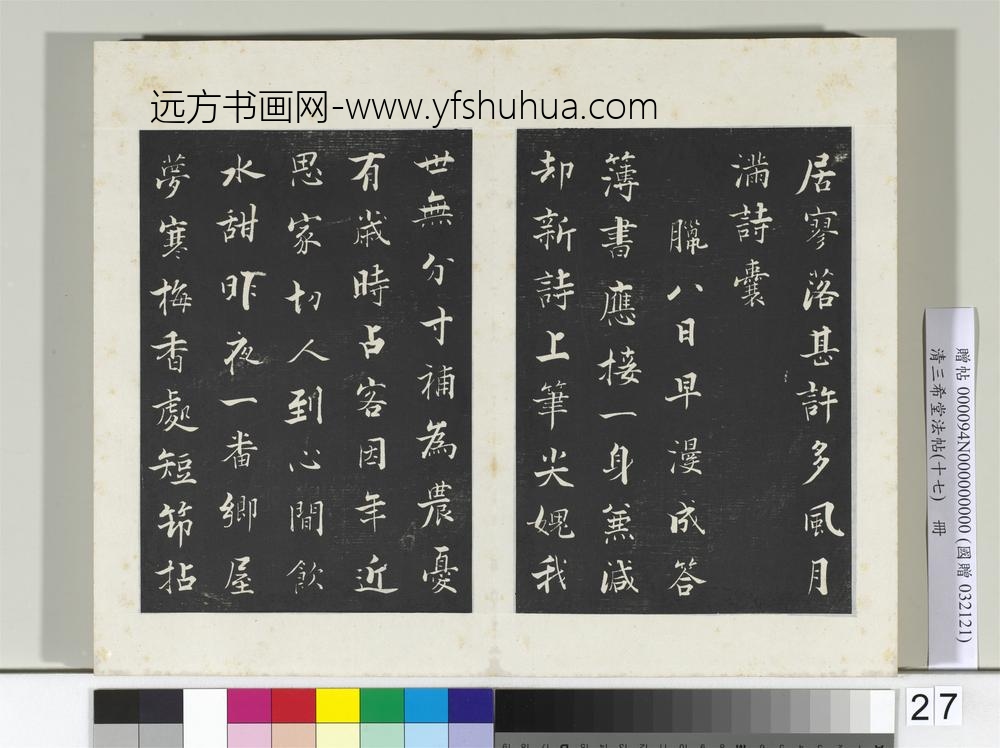 远方书画网-www.yfshuhua.com
居寥落甚許多風月
滿詩囊
臘八日早漫成答
簿書應接一身無減
却新詩上筆尖媿我
世無分寸補為農憂
有歲時占客因年近
思家切人到心間飲
水甜昨夜一番鄉屋
夢寒梅香處短筇拈
贈帖 000094N000000000 (國贈 032121)
清三希堂法帖(十七) 冊
27